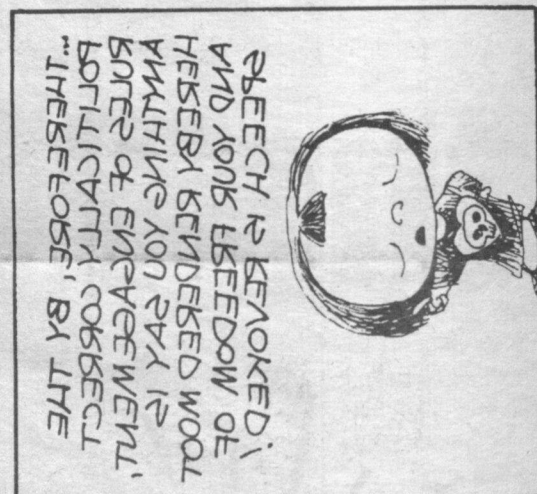 ...THEREFORE, BY THE
POLITICALLY CORRECT
RULES OF ENGAGEMENT,
ANYTHING YOU SAY IS
HEREBY RENDERED MOOT
AND YOUR FREEDOM OF
SPEECH IS REVOKED!